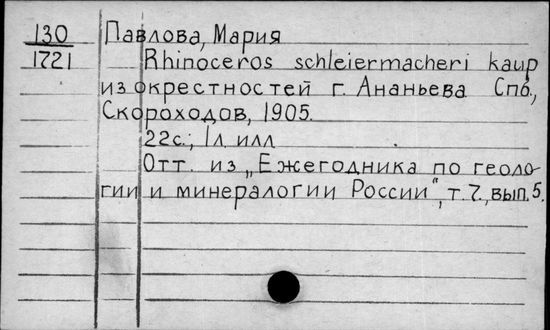 130
1721
Павлова, Мария
Rhinoceros schleiermacheri kaup
из окрестностей г. Ананьева Спб.,
Скороходов, 1905.
22с.; 1л илл
Отт. из „Ежегодника по геоло-
гии и минералогии России", т.7., вып.5.